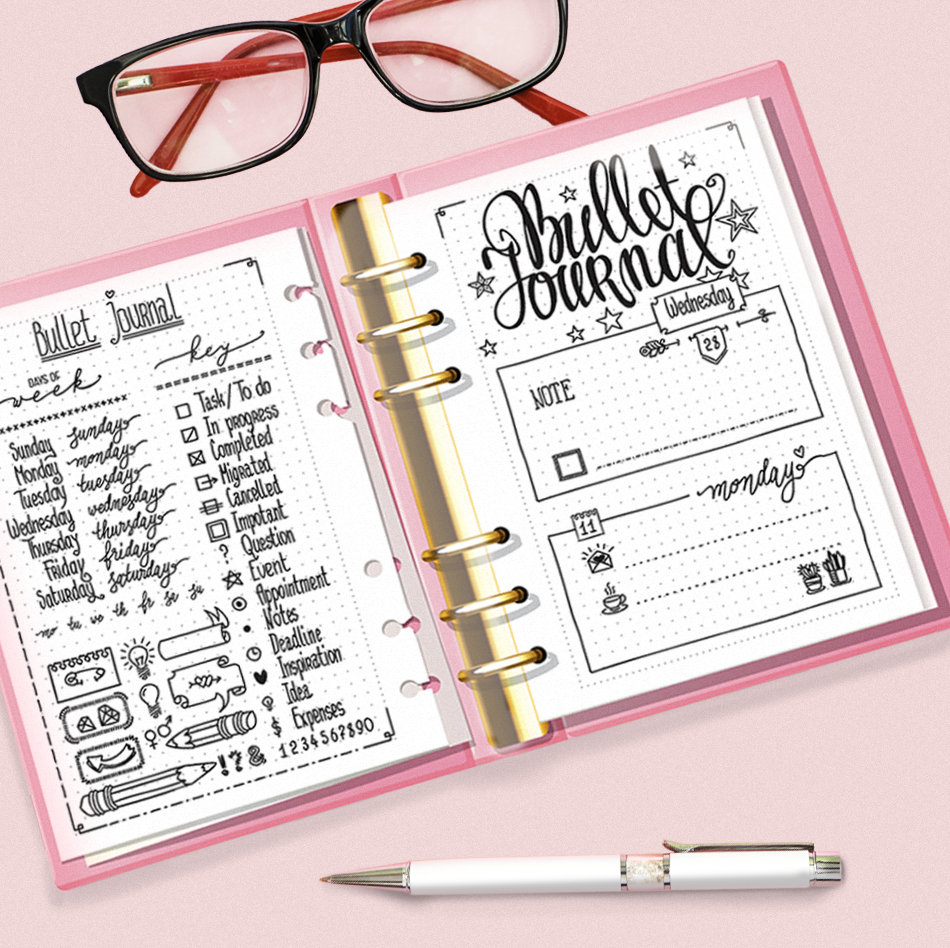 Bullet Journal
DAYS OF
week
key
Sunday sunday
Monday monday
Tuesday tuesday
Wednesday wednesday
Thursday thursday
Friday friday
Saturday saturday
mo tu we th fr sa su
Task/To do
In progress
Completed
Migrated
Cancelled
Impotant
? Question
Event
Appointment
Notes
Deadline
Inspiration
Idea
$ Expenses
!?&
1234567890
Bullet
Journal
Wednesday
28
NOTE
monday
11